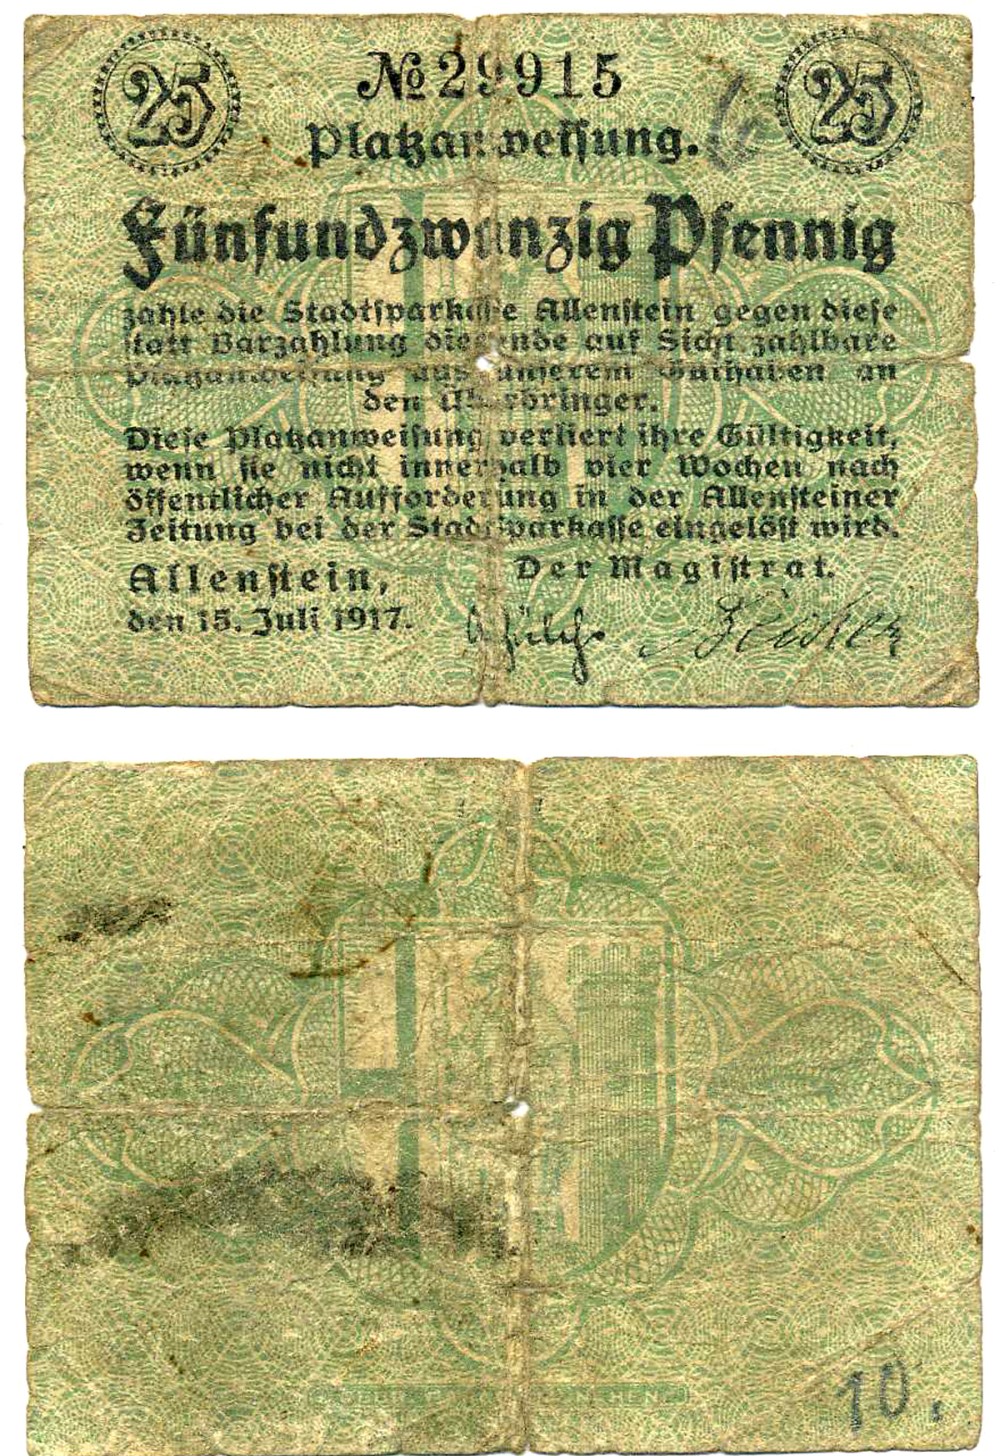 25 № 29915 25
Platzanweisung.
Fünfundzwanzig Pfennig
zahle die Stadtsparkasse Allenstein gegen diese
statt Barzahlung dienende auf Sicht zahlbare
Platzanweisung aus unserem Guthaben an
den Überbringer.
Diese Platzanweisung verliert ihre Gültigkeit,
wenn sie nicht innerhalb vier Wochen nach
öffentlicher Aufforderung in der Allensteiner
Zeitung bei der Stadtsparkasse eingelöst wird.
Allenstein, Der Magistrat.
den 15. Juli 1917.
10.